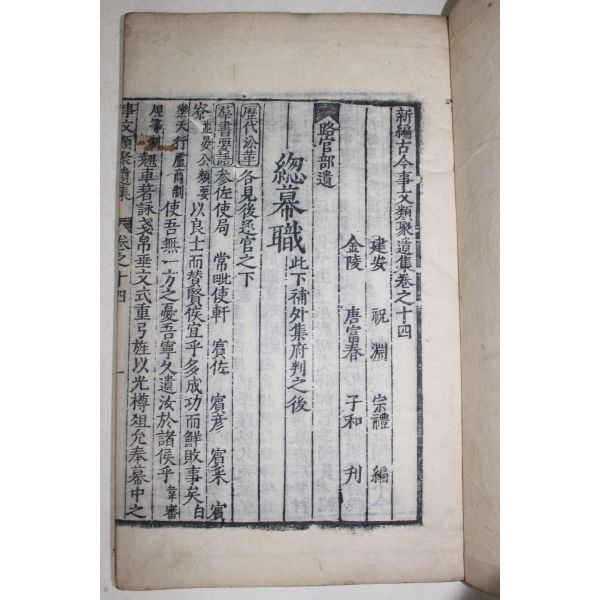 新編古今事文類聚遺集卷之十四
建安 祝淵 宗禮 編
金陵 唐富春 子和 刊
路官部遺
總幕職 此下補外集府判之後
歷代沿革 各見後逐官之下
羣書要語 參佐使局 常毗使軒 賓佐 賓彥 賓采 賓
寮 並晏公類要 以良士而替賢侯宜乎多成功而鮮敗事矣 白
樂天行盧商制 使吾無一方之憂吾寧久遺汝於諸侯乎 韋審
規等制 翹車著詠戔帛垂文式重弓旌以光樽俎允奉幕中之
事文類聚遺集 卷之十四 一